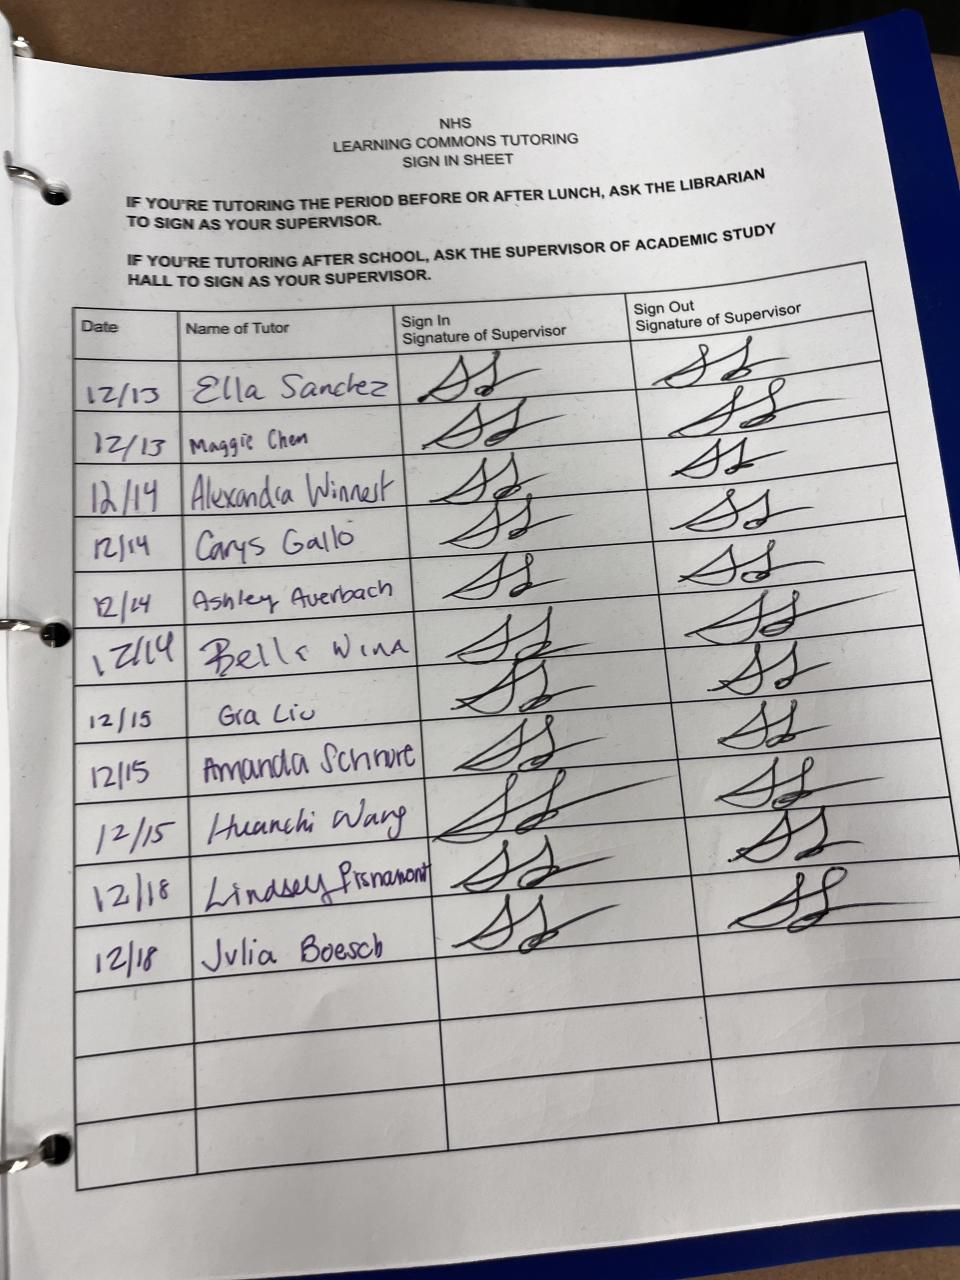 NHS
LEARNING COMMONS TUTORING
SIGN IN SHEET
IF YOU'RE TUTORING THE PERIOD BEFORE OR AFTER LUNCH, ASK THE LIBRARIAN
TO SIGN AS YOUR SUPERVISOR.
IF YOU'RE TUTORING AFTER SCHOOL, ASK THE SUPERVISOR OF ACADEMIC STUDY
HALL TO SIGN AS YOUR SUPERVISOR.
Date Name of Tutor Sign In Signature of Supervisor Sign Out Signature of Supervisor
12/13 Ella Sanchez
12/13 Maggie Chen
12/14 Alexandra Winnest
12/14 Carys Gallo
12/14 Ashley Auerbach
12/14 Bella
12/15 Gia Liu
12/15 Amanda Schnure
12/15 Huanchi Wang
12/18 Lindsey
12/18 Julia Boesch